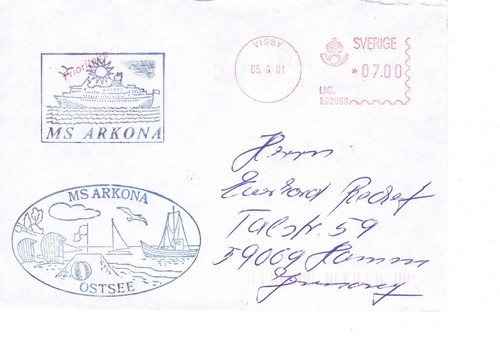 VISBY
05. 9. 01
SVERIGE
*07.00
LIC.
802059
Prioritaire
MS ARKONA
MS ARKONA
OSTSEE
Herrn
Eberhard
Talstr. 59
59069 Hamm
Germany